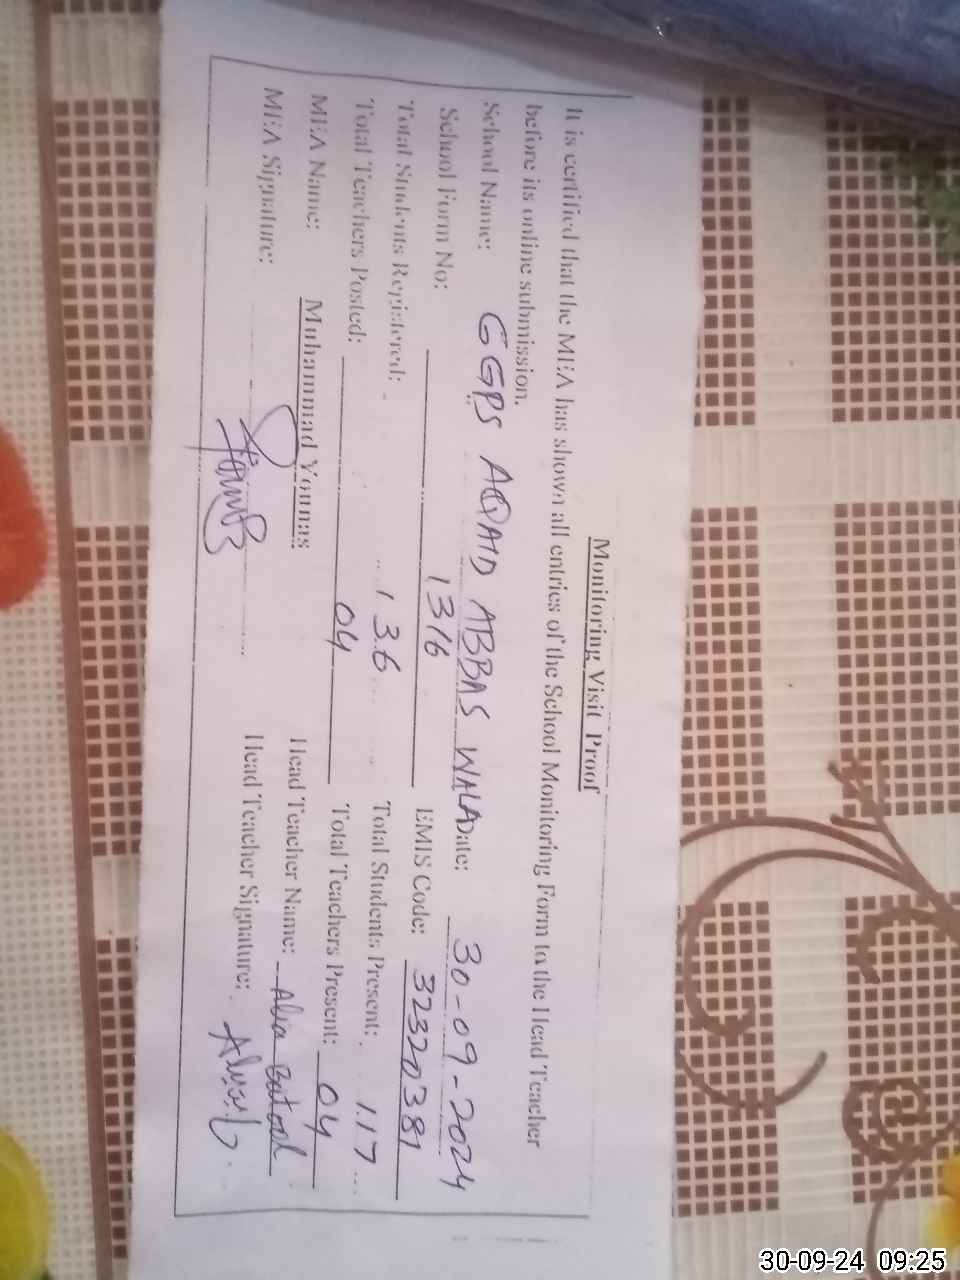 Monitoring Visit Proof
It is certified that the MEA has shown all entries of the School Monitoring Form to the Head Teacher
before its online submission.
School Name: GGPS AQAID ABBAS WALA Date: 30-09-2024
School Form No: 1316 EMIS Code: 32320381
Total Students Registered: 136 Total Students Present: 117
Total Teachers Posted: 04 Total Teachers Present: 04
MEA Name: Muhammad Younas Head Teacher Name: Alia Batool
MEA Signature: Head Teacher Signature:
30-09-24 09:25